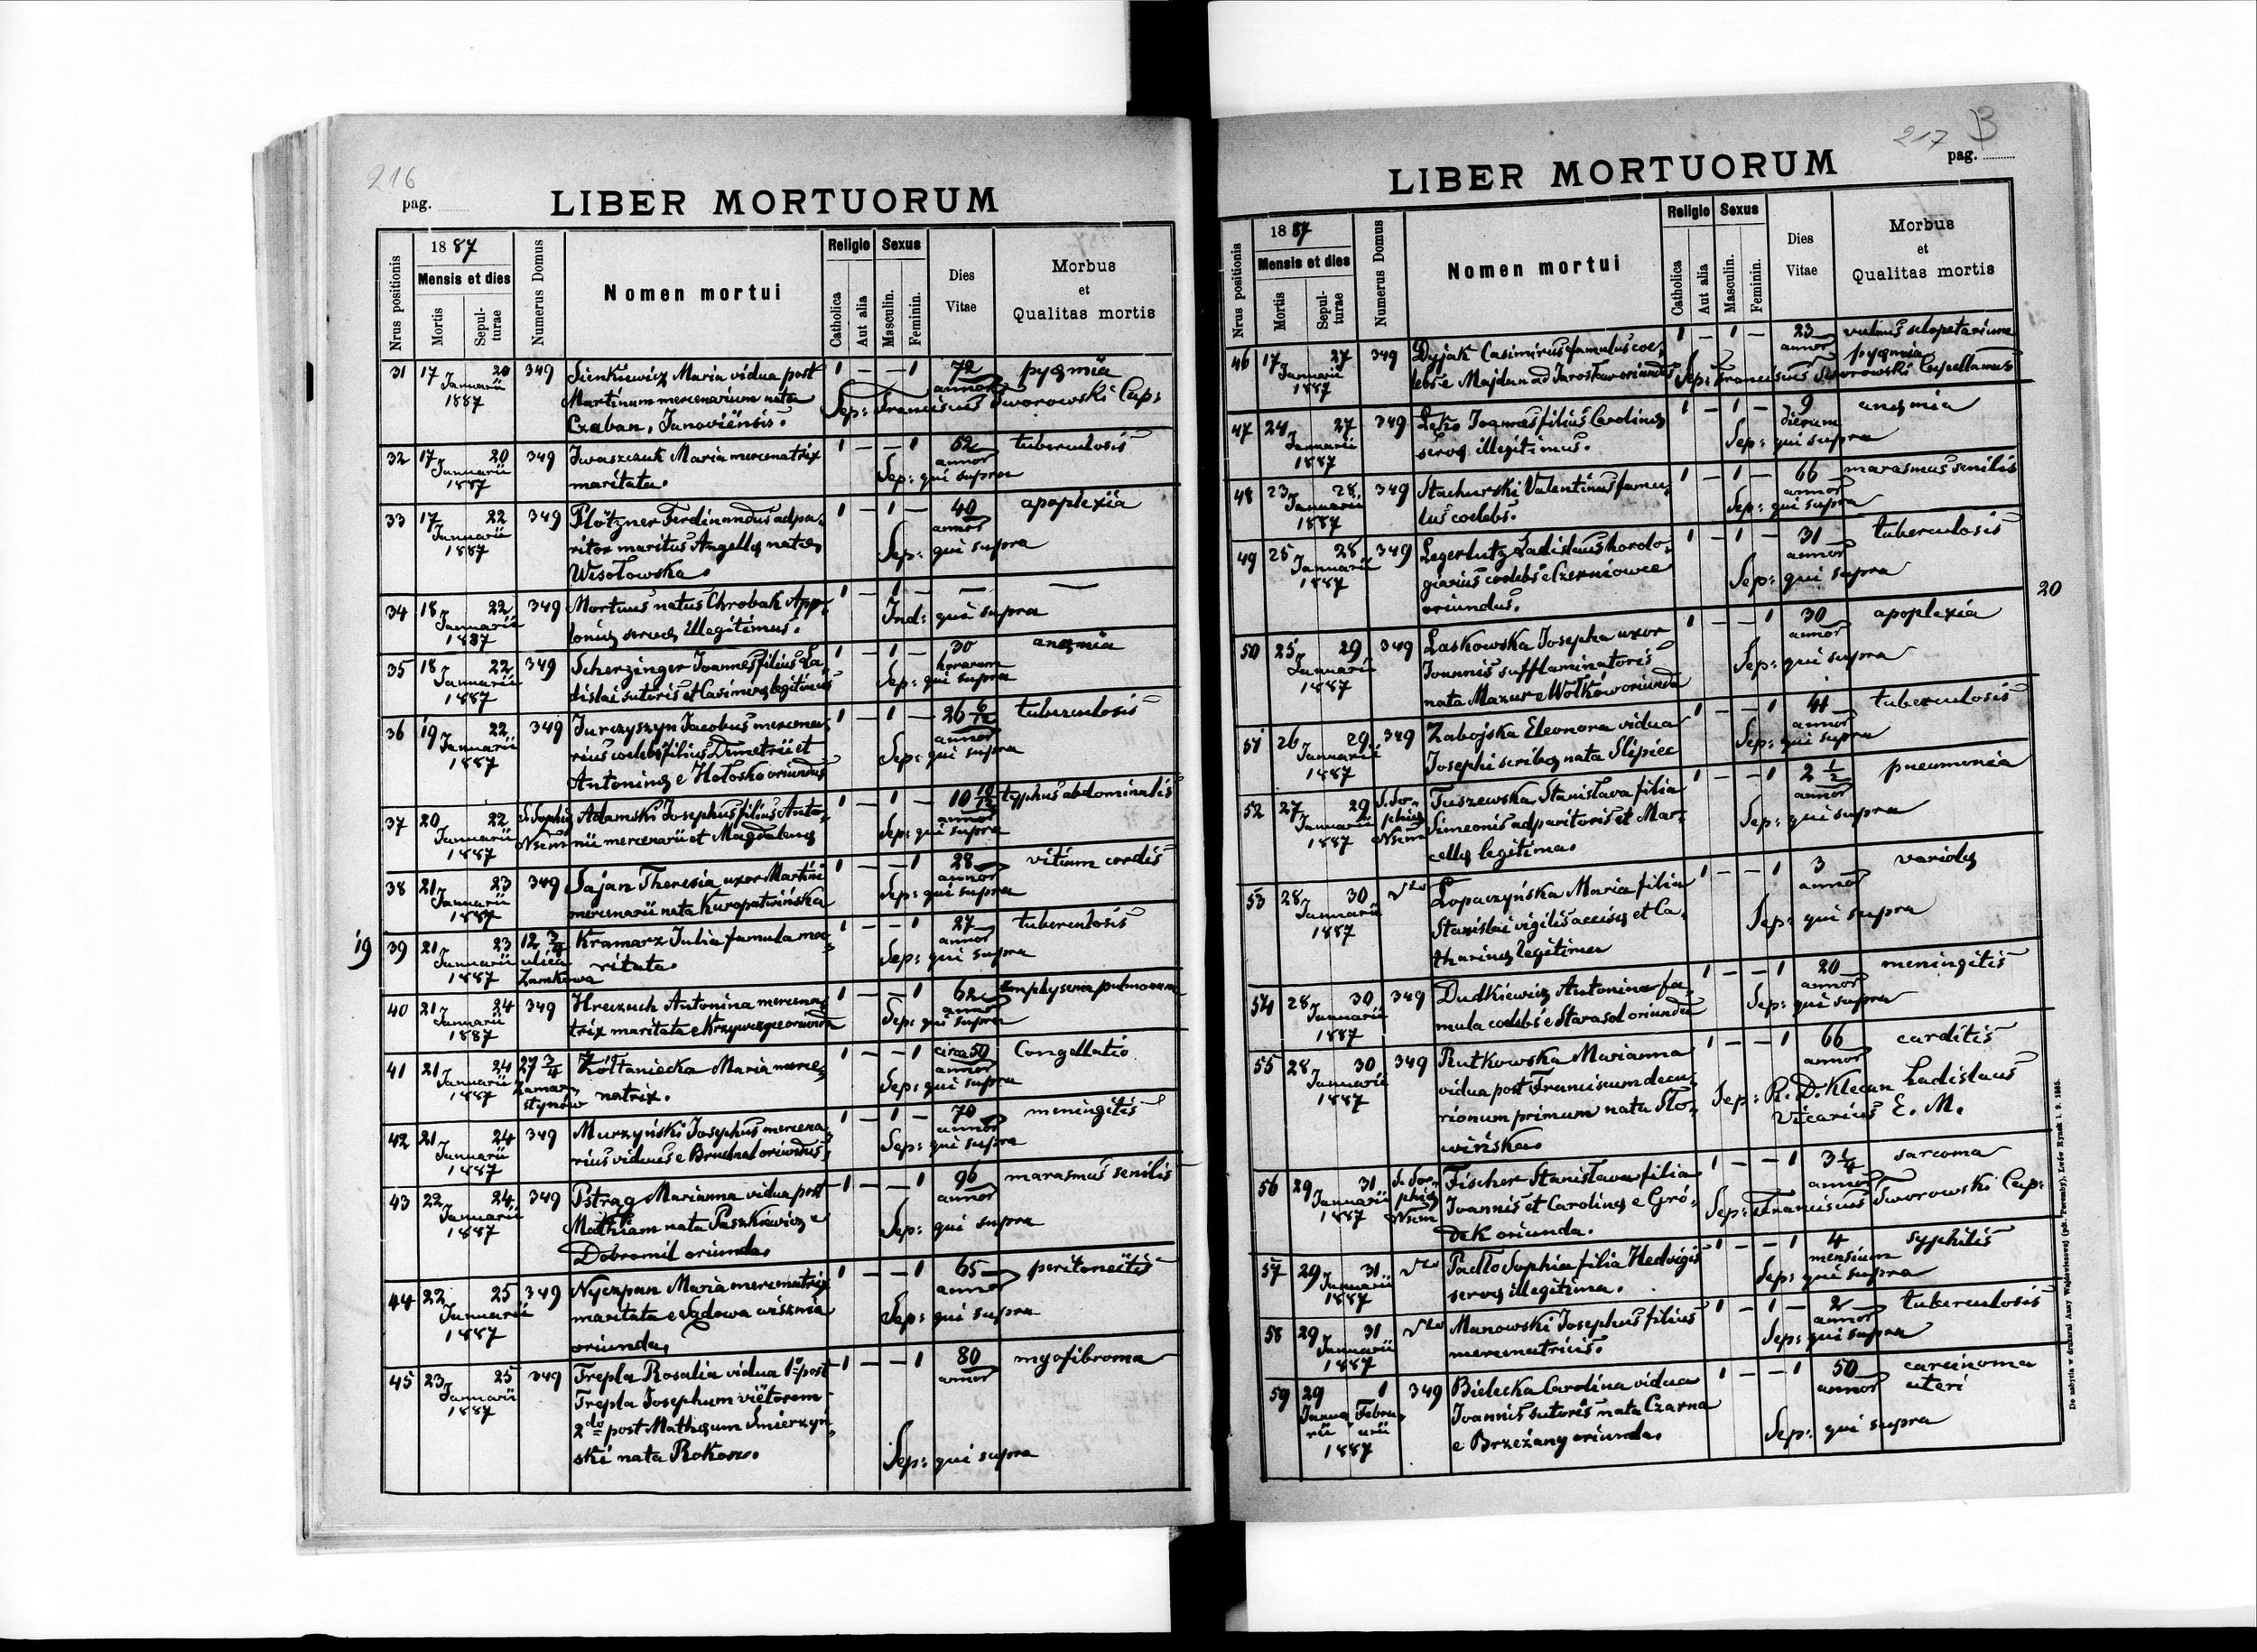 216
pag.
LIBER MORTUORUM
Nrus positionis
1887
Mensis et dies
Mortis
Sepul-
turae
Numerus Domus
Nomen mortui
Religio
Catholica
Aut alia
Sexus
Masculin.
Feminin.
Dies
Vitae
Morbus
et
Qualitas mortis
31 17 20 349 Sienkiewicz Maria vidua post 1 – – 1 72 pyæmia
Januarii Martinum mercenarium nata annor
1887 Czaban, Janoviënsis. Sep: Franciscus Sworowski Cap:
32 17 20 349 Iwaszczuk Maria mercenatrix 1 – – 1 52 tuberculosis
Januarii maritata. annor
1887 Sep: qui supra
33 17 22 349 Plötzner Ferdinandus adpa- 1 – 1 – 40 apoplexia
Januarii ritor maritus Angellæ natæ annor
1887 Wesołowska. Sep: qui supra
34 18 22 349 Mortuus natus Chrobak App- 1 – 1 – — —
Januarii loniæ servæ illegitimus. Ind: qui supra
1887
35 18 22 349 Scherzinger Joannes filius La- 1 – 1 – 30 anæmia
Januarii dislai sutoris et Casimiræ legitimus horarum
1887 Sep: qui supra
36 19 22 349 Jurczyszyn Jacobus mercena- 1 – 1 – 26 6/12 tuberculosis
Januarii rius coelebs filius Dimetrii et annor
1887 Antoninæ e Hołosko oriundus Sep: qui supra
37 20 22 S. Sophiæ Adamski Josephus filius Anto- 1 – 1 – 10 10/12 typhus abdominalis
Januarii Nsem nii mercenarii et Magdalenæ annor
1887 Sep: qui supra
38 21 23 349 Sajan Theresia uxor Martini 1 – – 1 28 vitium cordis
Januarii mercenarii nata Kuropatwińska annor
1887 Sep: qui supra
19
39 21 23 12 3/4 Kramarz Julia famula ma- 1 – – 1 27 tuberculosis
Januarii ulica ritata. annor
1887 Zamkowa Sep: qui supra
40 21 24 349 Hrewuch Antonina mercena- 1 – – 1 62 emphysema pulmonum
Januarii trix maritata e Krzywczyce oriunda annor
1887 Sep: qui supra
41 21 24 27 3/4 Żółtaniecka Maria merce- 1 – – 1 circa 50 Congellatio
Januarii Zamar- natrix. annor
1887 stynów Sep: qui supra
42 21 24 349 Murzyński Josephus mercena- 1 – 1 – 70 meningitis
Januarii rius viduus e Bruchnal oriundus annor
1887 Sep: qui supra
43 22 24 349 Pstrąg Marianna vidua post 1 – – 1 96 marasmus senilis
Januarii Mathiam nata Paszkiewicz e annor
1887 Dobromil oriunda. Sep: qui supra
44 22 25 349 Nyczpan Maria mercenatrix 1 – – 1 65 peritoneitis
Januarii maritata e Sądowa wisznia annor
1887 oriunda, Sep: qui supra
45 23 25 349 Trepla Rosalia vidua 1º post 1 – – 1 80 myofibroma
Januarii Trepla Josephum viëtorem annor
1887 2do post Mathæum Smierzyń-
ski nata Rokosz. Sep: qui supra
217 B
pag.
LIBER MORTUORUM
Nrus positionis
1887
Mensis et dies
Mortis
Sepul-
turae
Numerus Domus
Nomen mortui
Religio
Catholica
Aut alia
Sexus
Masculin.
Feminin.
Dies
Vitae
Morbus
et
Qualitas mortis
46 17 27 349 Dyjak Casimirus famulus coe- 1 – 1 – 23 vulnus sclopetarium
Januarii lebs e Majdan ad Jarosław oriundus annor pyæmia
1887 Sep: Franciscus Sworowski Capellanus
47 24 27 349 Łęko Joannes filius Carolinæ 1 – 1 – 9 anæmia
Januarii servæ illegitimus. dierum
1887 Sep: qui supra
48 23 28 349 Stachurski Valentinus famu- 1 – 1 – 66 marasmus senilis
Januarii lus coelebs. annor
1887 Sep: qui supra
49 25 28 349 Legerlutz Ladislaus horolo- 1 – 1 – 31 tuberculosis
Januarii giarius coelebs e Czerniowce annor
1887 oriundus. Sep: qui supra
20
50 25 29 349 Laskowska Josepha uxor 1 – – 1 30 apoplexia
Januarii Joannis sufflaminatoris annor
1887 nata Mazur e Wołków oriunda Sep: qui supra
51 26 29 349 Zabojska Eleonora vidua 1 – – 1 41 tuberculosis
Januarii Josephi scribæ nata Slipiec annor
1887 Sep: qui supra
52 27 29 S. So- Tuszewska Stanislava filia 1 – – 1 2 1/2 pneumonia
Januarii phiæ Simeonis adparitoris et Mar- annor
1887 Nsem cellæ legitima. Sep: qui supra
53 28 30 Łopaczyńska Maria filia 1 – – 1 3 variolæ
Januarii Stanislai vigilis accisæ et Ca- annor
1887 tharinæ legitima Sep: qui supra
54 28 30 349 Dudkiewicz Antonina fa- 1 – – 1 20 meningitis
Januarii mula coelebs e Starasol oriunda annor
1887 Sep: qui supra
55 28 30 349 Rutkowska Marianna 1 – – 1 66 carditis
Januarii vidua post Franciscum decu- annor
1887 rionum primum nata Sło- Sep: R. D. Klecan Ladislaus
wińska. Vicarius E. M.
56 29 31 S. So- Fischer Stanislava filia 1 – – 1 3 1/4 sarcoma
Januarii phiæ Joannis et Carolinæ e Gró- annor
1887 Nsem dek oriunda. Sep: Franciscus Sworowski Cap:
57 29 31 Padło Sophia filia Hedvigis 1 – – 1 4 syphilis
Januarii servæ illegitima. mensium
1887 Sep: qui supra
58 29 31 Manowski Josephus filius 1 – 1 – 2 tuberculosis
Januarii mercenatricis. annor
1887 Sep: qui supra
59 29 1 349 Bielecka Carolina vidua 1 – – 1 50 carcinoma
Janua- Febru- Joannis sutoris nata Czarna annor uteri
rii arii e Brzeżany oriunda. Sep: qui supra
1887
De nabycia w drukarni Anny Wajdowiczowej (pod. Poremby), Lwów Rynek l. 9. 1885.